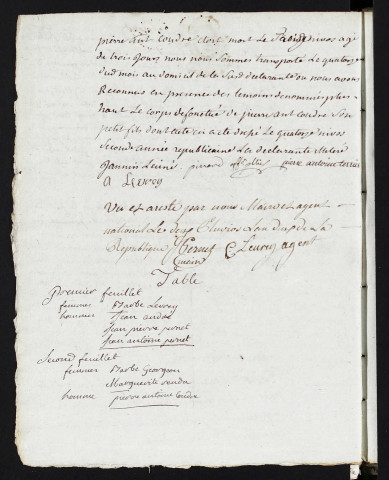 pierre ant coudre dont mort le treize nivos agé
de trois jours nous nous sommes transporté le quatorze
dud mois au domicil de la ditte declarante ou nous avons
Reconnus en presence des temoins denommés plus
haut Le corps defonctué de pierre ant coudre son
petit fils dont acte cié acte de jai Le quatorze nivos
seconde année republicaine La declarante
jannin Leiné pierre antoine
a Levrey
Vu et aresté par nous Maire et agent
national Les deux Pluviose Lan deux de La
Republique Pernet C Levrey agent
maire
Table
Premier feuillet
femmes Barbe Levrey
hommes Jean andré
Jean pierre pernet
Jean antoine pernet
Second feuillet
femmes Barbe Georgeon
Marguerite
homme pierre antoine Coudre